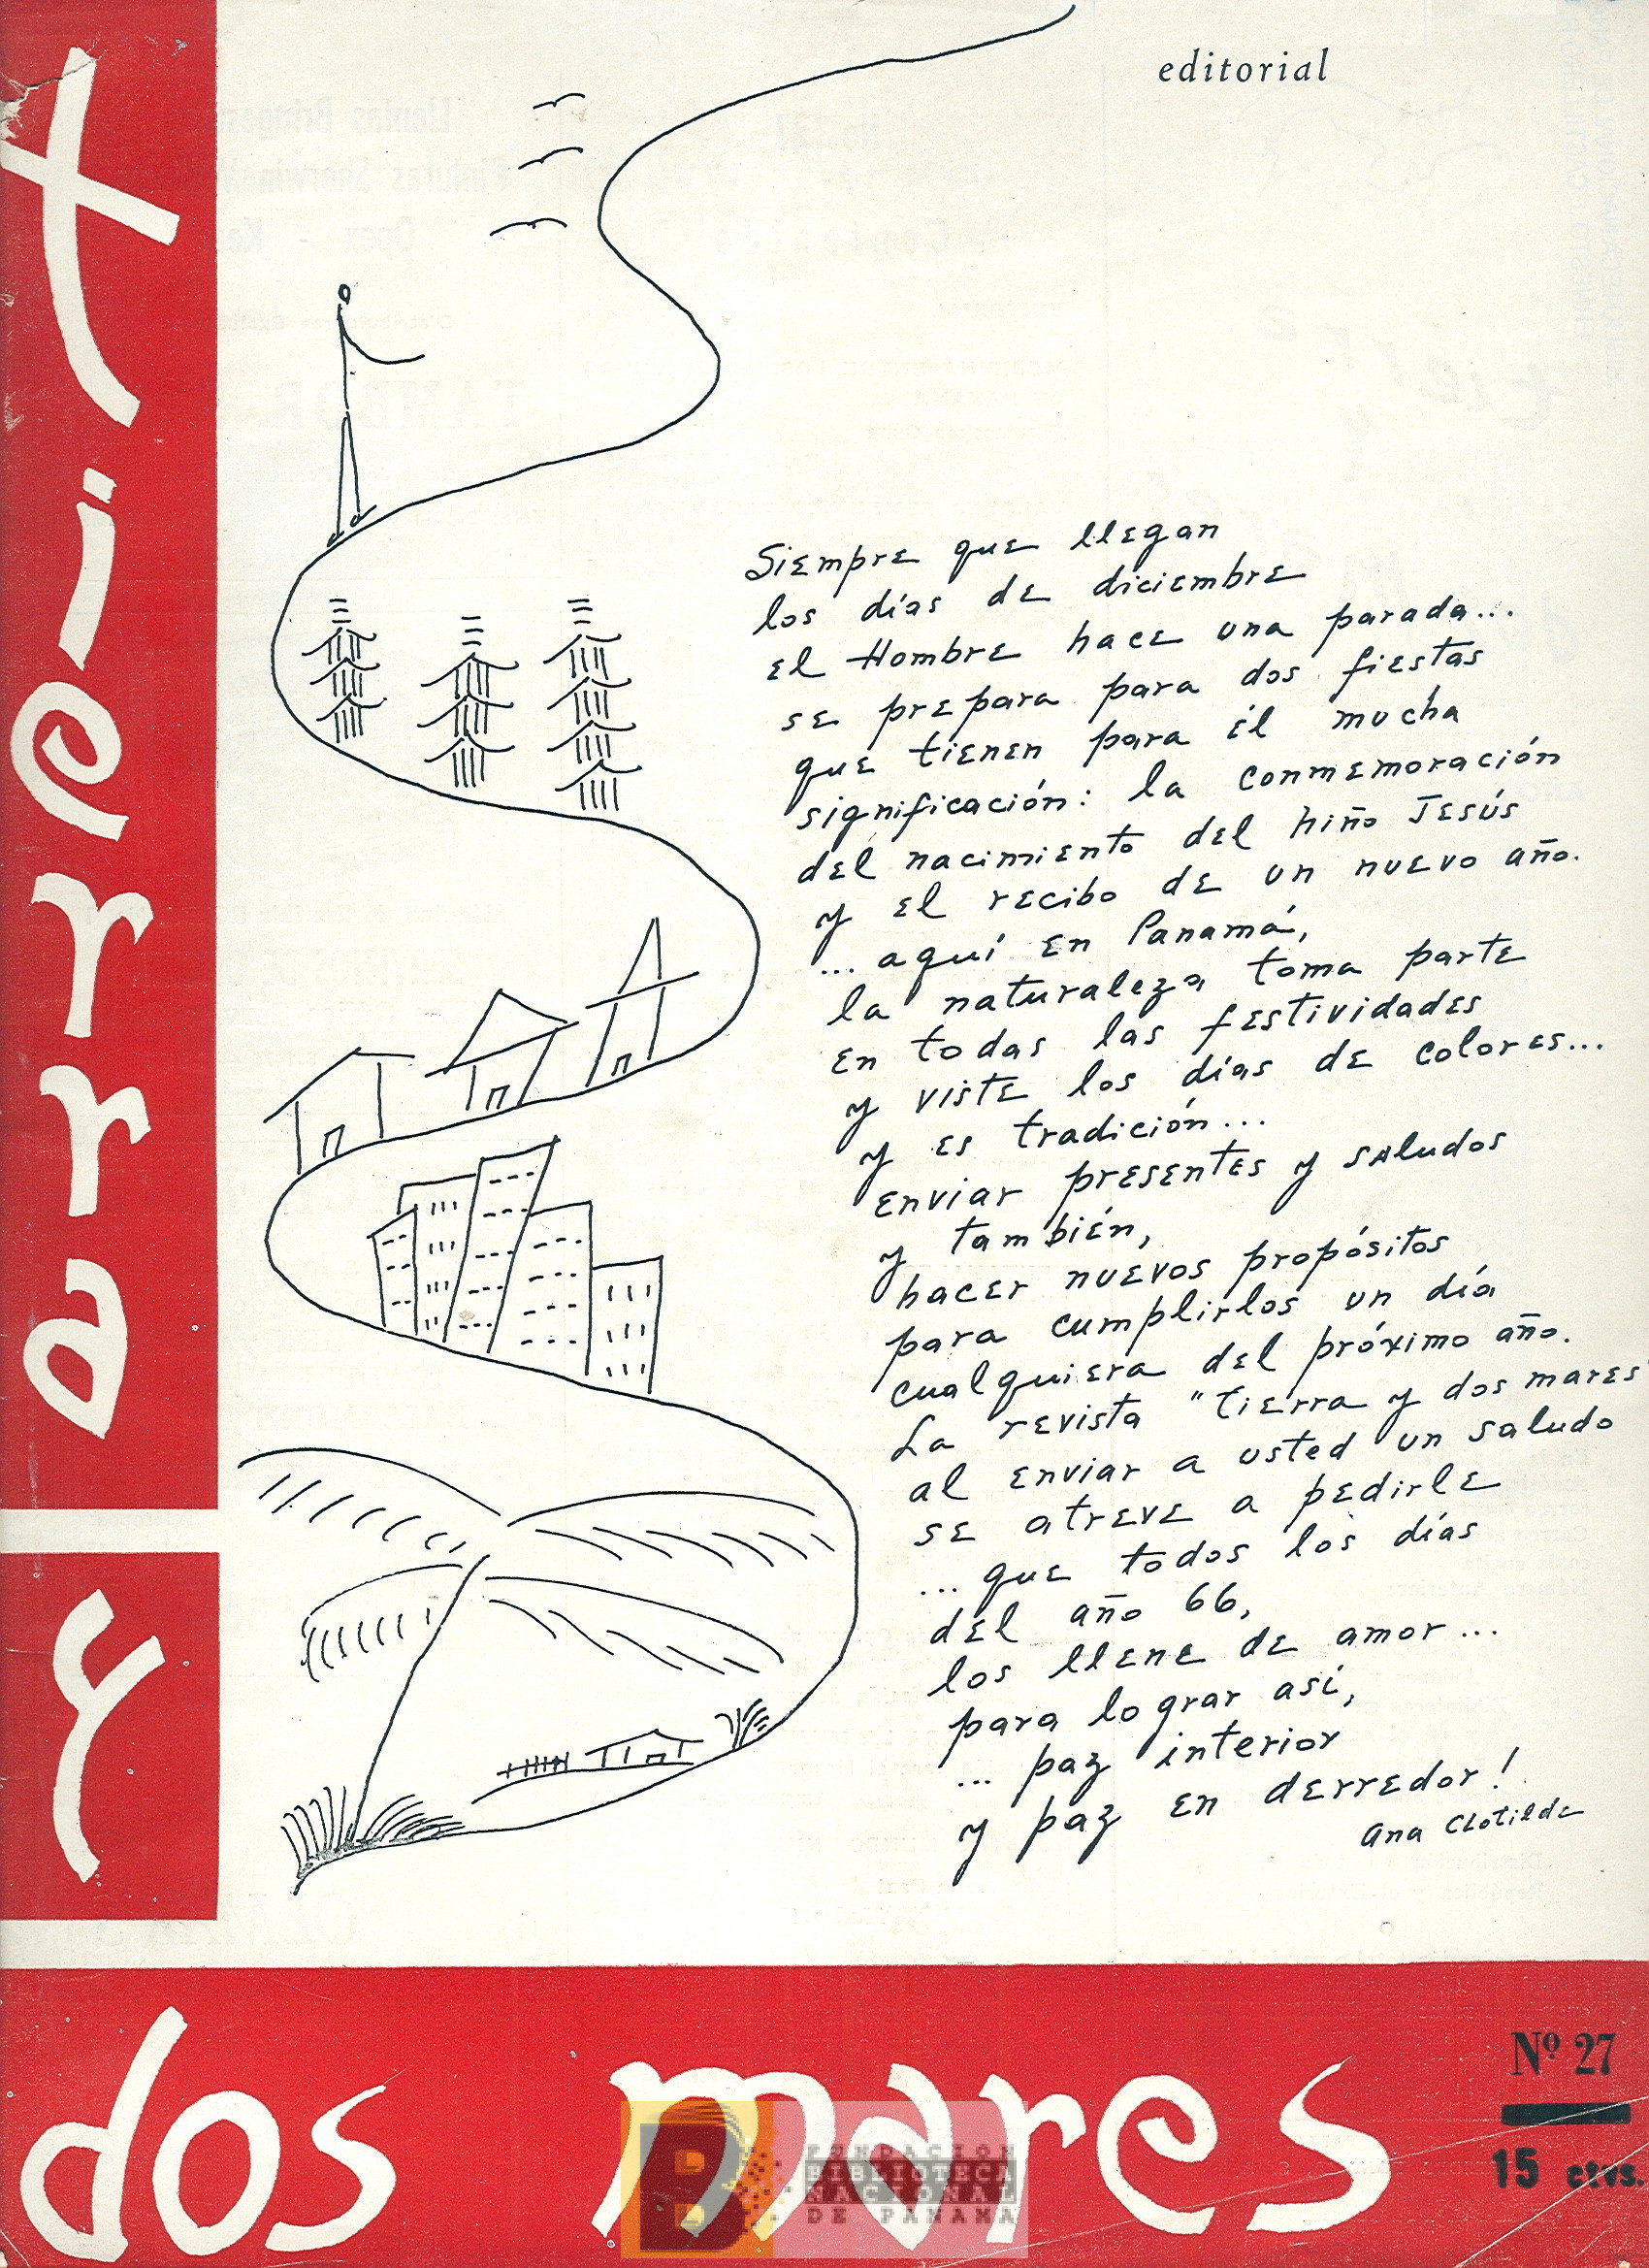 editorial
Siempre que llegan
los días de diciembre
el Hombre hace una parada...
se prepara para dos fiestas
que tienen para él mucha
significación: la conmemoración
del nacimiento del Niño Jesús
y el recibo de un nuevo año.
... aquí en Panamá,
la naturaleza toma parte
en todas las festividades
y viste los días de colores...
y es tradición...
enviar presentes y saludos
y también,
hacer nuevos propósitos
para cumplirlos un día
cualquiera del próximo año.
La revista "Tierra y dos mares
al enviar a usted un saludo
se atreve a pedirle
... que todos los días
del año 66,
los llene de amor...
para lograr así,
... paz interior
y paz en derredor!
Ana Clotilde
tierra
y
dos mares
Nº 27
15 ctvs.
FUNDACIÓN
BIBLIOTECA
NACIONAL
DE PANAMÁ